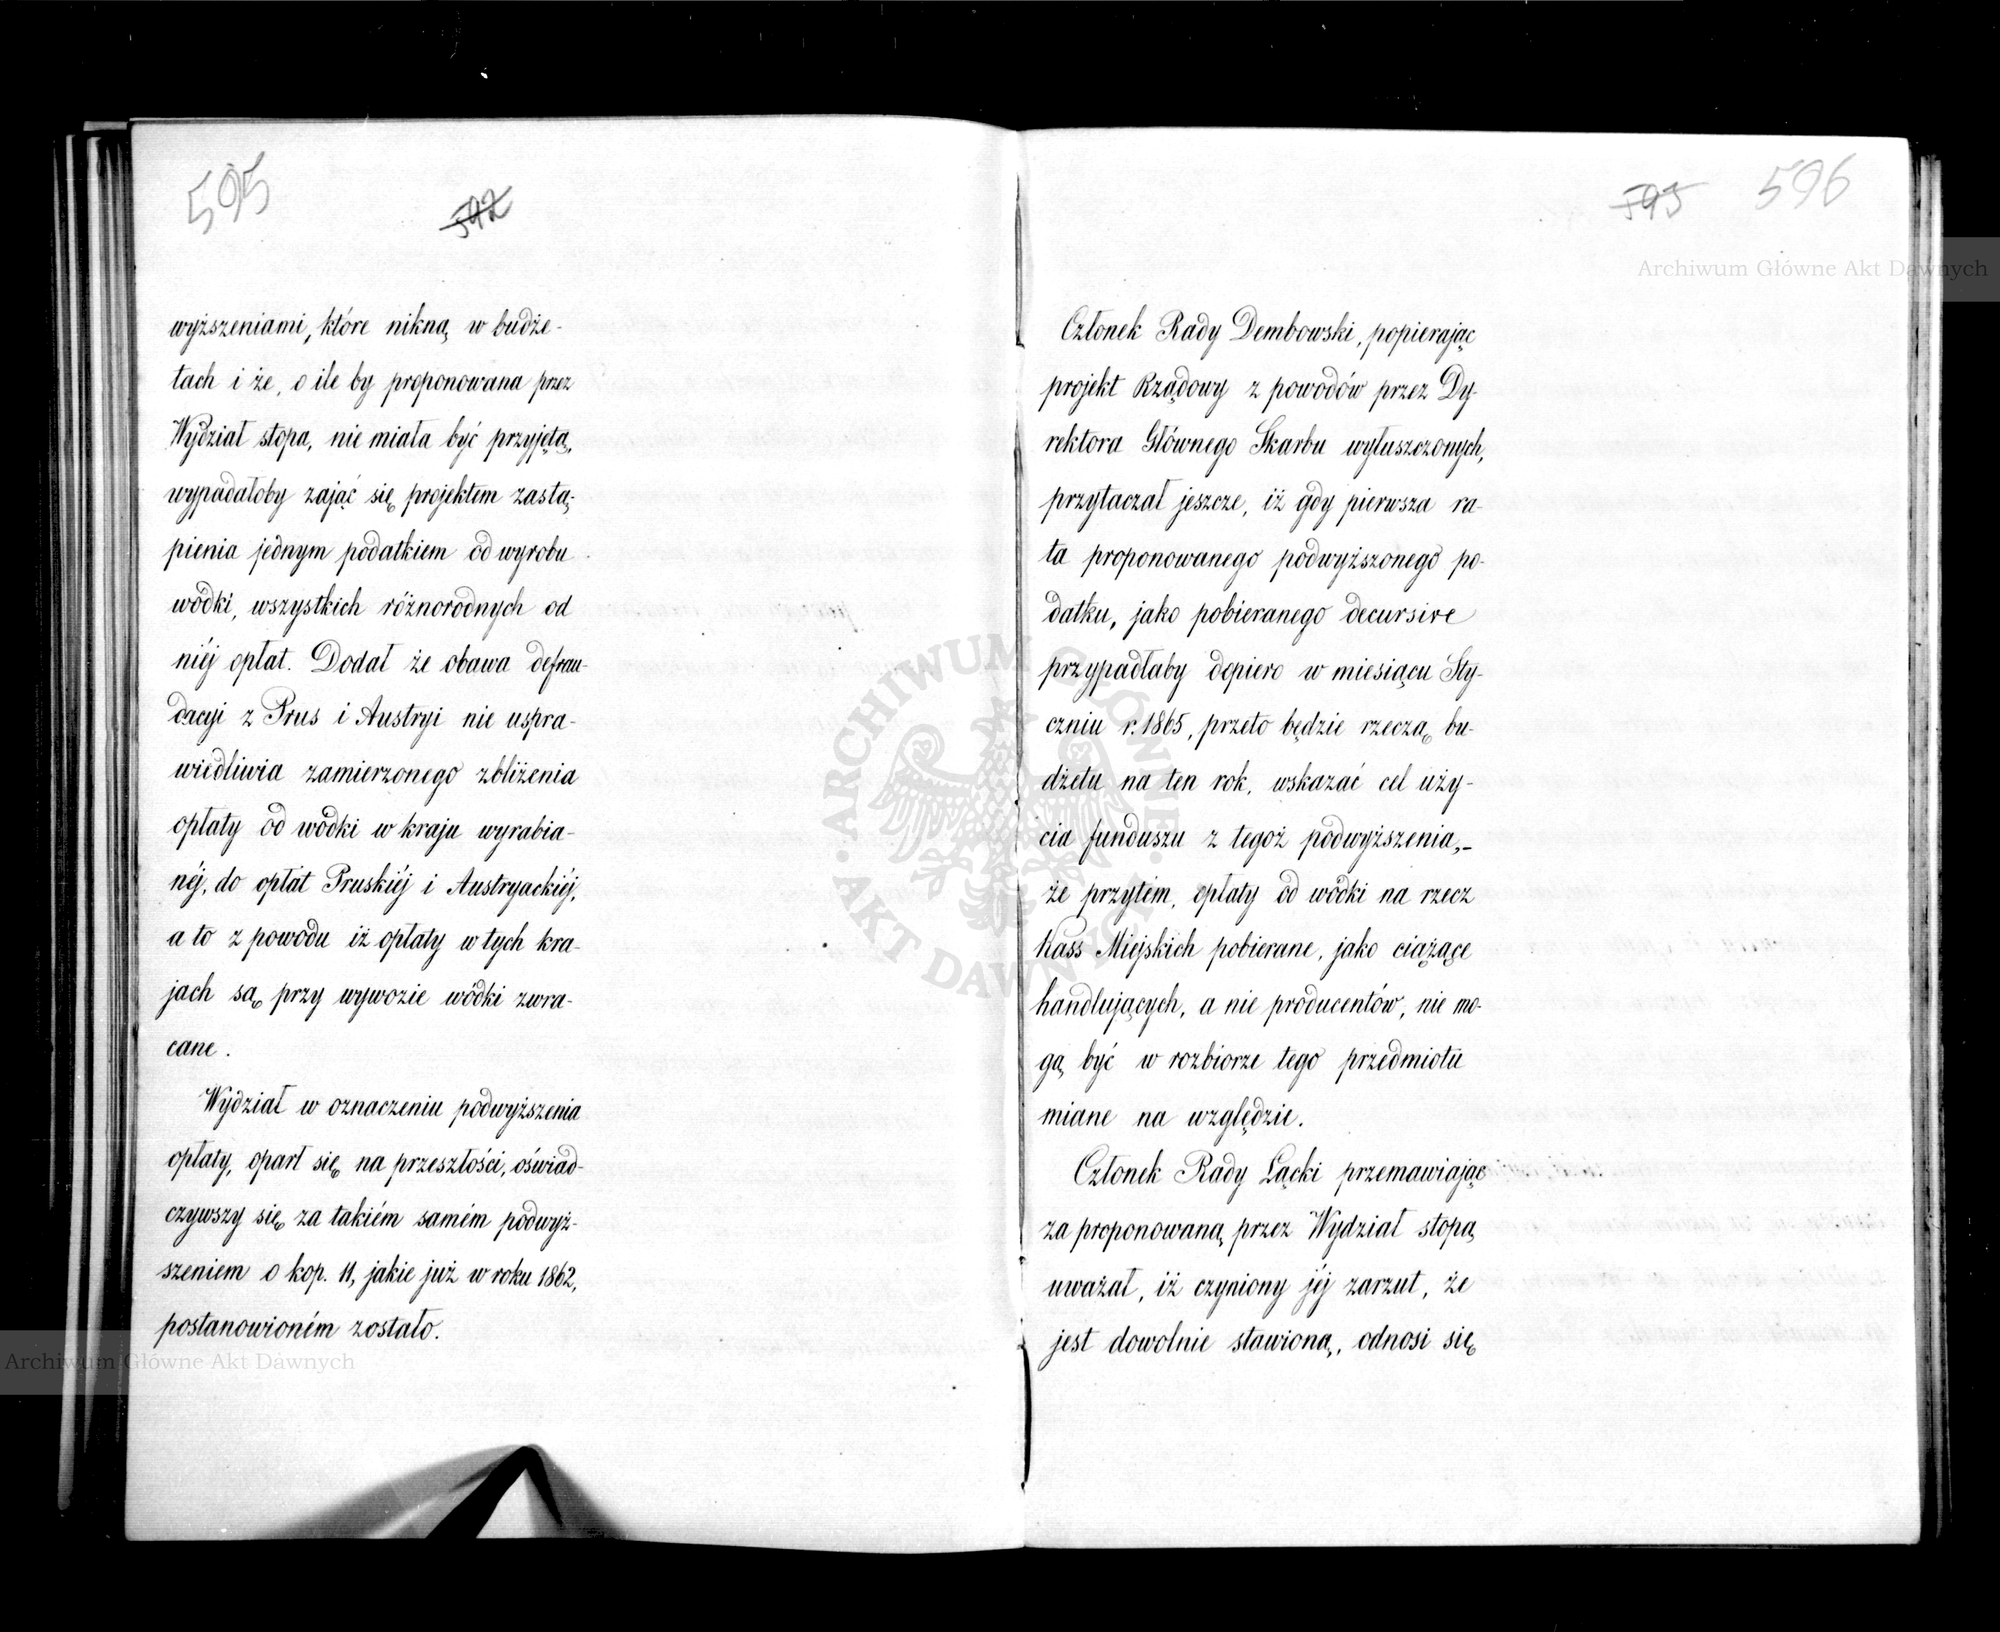 595
542
wyższeniami, które nikną w budże-
tach i że, o ile by proponowana przez
Wydział stopa, nie miała być przyjętą,
wypadałoby zająć się projektem zastą-
pienia jednym podatkiem od wyrobu
wódki, wszystkich różnorodnych od
niéj opłat. Dodał że obawa defrau-
dacyi z Prus i Austryi nie uspra-
wiedliwia zamierzonego zbliżenia
opłaty od wódki w kraju wyrabia-
néj, do opłat Pruskiéj i Austryackiéj,
a to z powodu iż opłaty w tych kra-
jach są przy wywozie wódki zwra-
cane.
Wydział w oznaczeniu podwyższenia
opłaty, oparł się na przeszłości, oświad-
czywszy się za takiém samém podwyż-
szeniem o kop. 11, jakie już w roku 1862,
postanowioném zostało.
Archiwum Główne Akt Dawnych
596
Archiwum Główne Akt Dawnych
Członek Rady Dembowski, popierając
projekt Rządowy z powodów przez Dy-
rektora Głównego Skarbu wyłuszczonych,
przytaczał jeszcze, iż gdy pierwsza ra-
ta proponowanego podwyższonego po-
datku, jako pobieranego decursive
przypadłaby dopiero w miesiącu Sty-
czniu r. 1865, przeto będzie rzeczą bu-
dżetu na ten rok, wskazać cel uży-
cia funduszu z tegoż podwyższenia,–
że przytém, opłaty od wódki na rzecz
Kass Miejskich pobierane, jako ciążące
handlujących, a nie producentów, nie mo-
gą być w rozbiorze tego przedmiotu
miane na względzie.
Członek Rady Łącki przemawiając
za proponowaną przez Wydział stopą
uważał, iż czyniony jéj zarzut, że
jest dowolnie stawioną, odnosi się
ARCHIWUM GŁÓWNE
AKT DAWNYCH